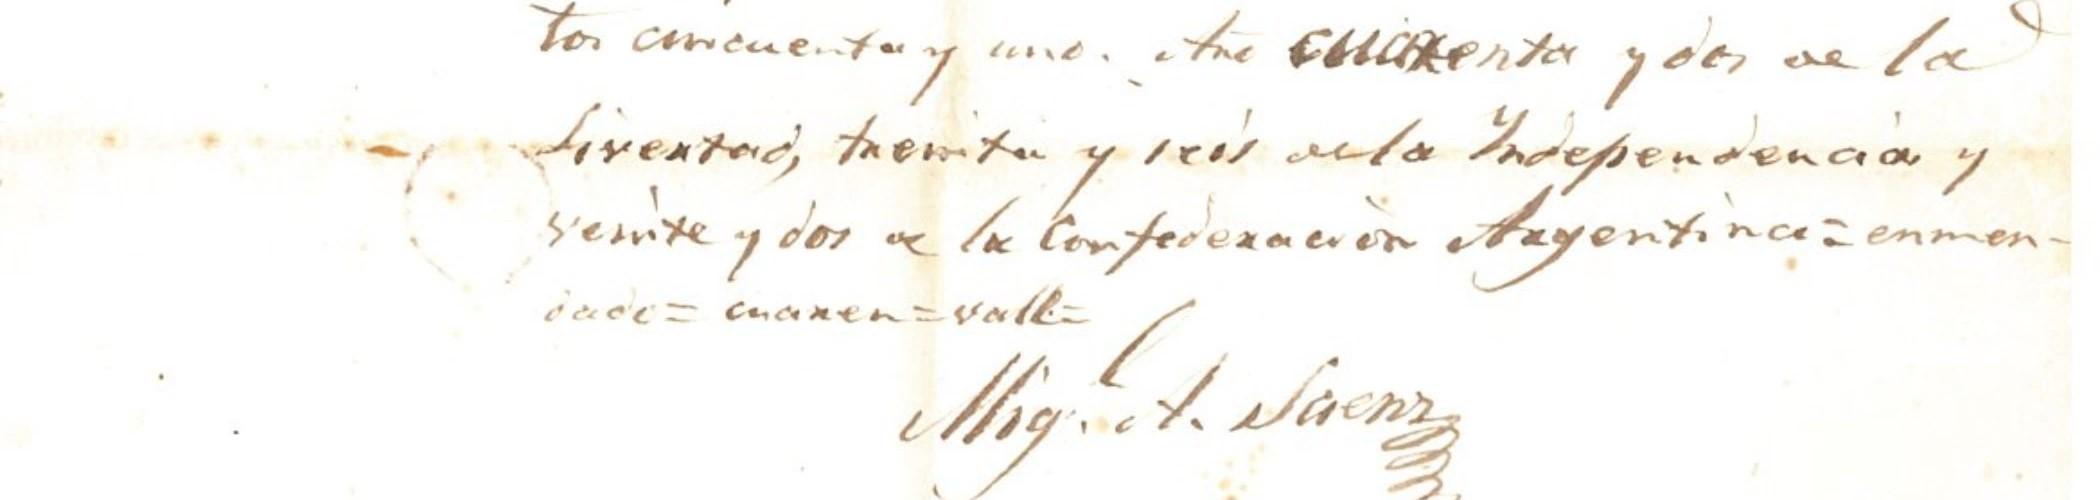 tos cincuenta y uno. Año cuarenta y dos de la
Livertad, treinta y seis de la Independencia y
veinte y dos de la Confederacion Argentina = enmen-
dado = cuaren = valle =
Mig.l A. Saenz